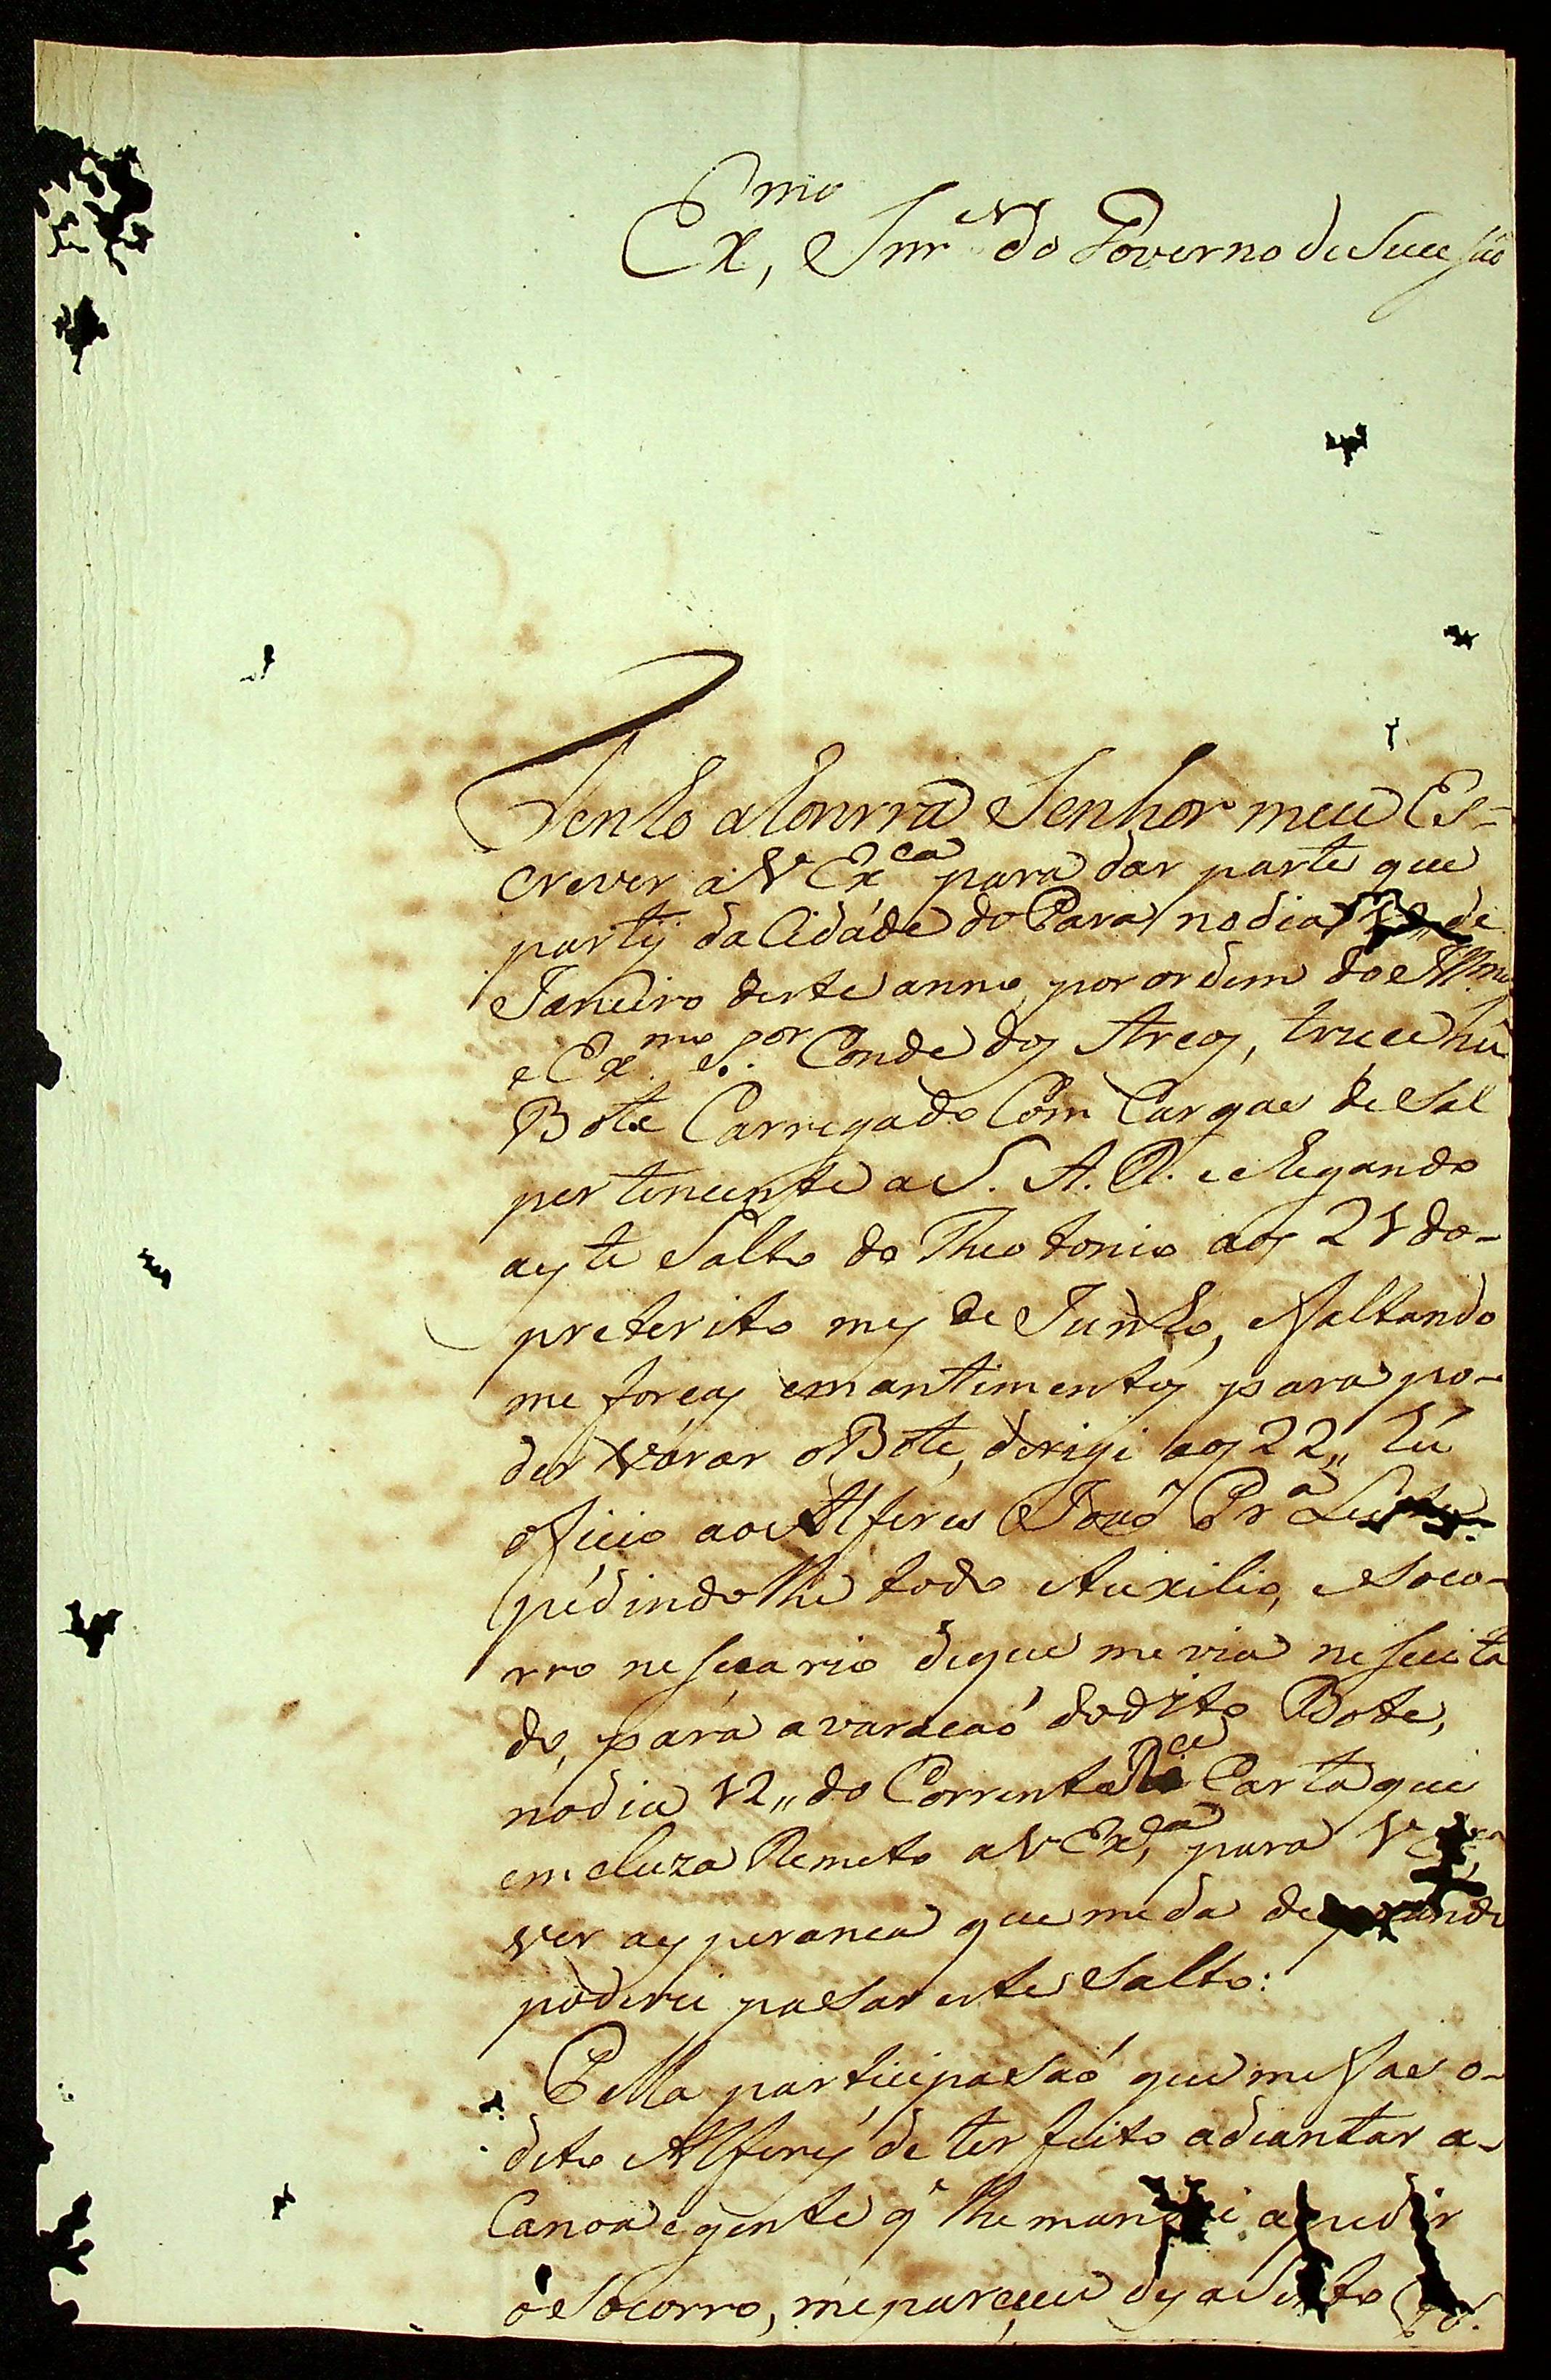 Ex,mo Snr.es do Governo de Sucesão
Tenho ahonrra Senhor meu Es=
crever a V Exca para dar parte que
party da Cidáde do Pará no dia de
Janeiro deste anno por ordem do Illmo
e Exmo S.or Conde dos Arcos, truce hú
Bote Carregado Com Cargas de Sal
pertencente a S. A. R. e chegando
a este Salto do Theotonio aos 21 do-
preterito mes de Junho, e faltando
me forças e mantimentos para po-
der várar o Bote, derigi aos 22,, hú
oficio ao Alferes João Pra
pédindo lhe todo Auxilio, e Soco-
rro nesesario de que me via nesecita
do, pará avaração do dito Bote,
no dia 12,, do Corrente Carta que
em cluza Remeto a V Ex,ca para V Ex,ca
ver a esperanca que me da de
poderei pasar este Salto:
Pella participasaó que me faes o-
dito Alferes de ter feito adiantar a-
Canoa e gente q̃ lhe mandei a pedir
ó Socorro, me pareceu